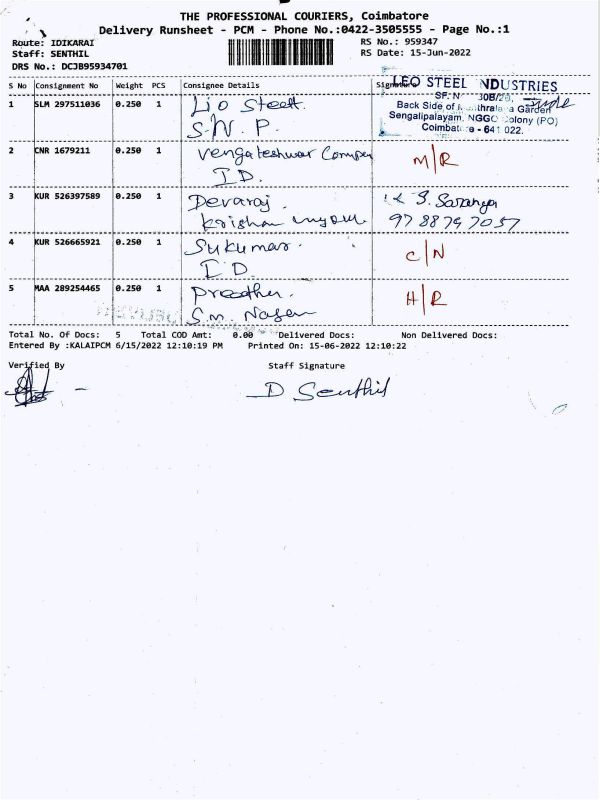 THE PROFESSIONAL COURIERS, Coimbatore
Delivery Runsheet - PCM - Phone No.:0422-3505555 - Page No.:1
Route: IDIKARAI
Staff: SENTHIL
DRS No.: DCJB95934701
RS No.: 959347
RS Date: 15-Jun-2022
S No Consignment No Weight PCS Consignee Details
LEO STEEL INDUSTRIES
SF. N 30B/2B,
Back Side of Garden
Sengalipalayam, NGGO Colony (PO)
Coimbatore - 641 022.
1 SLM 297511036 0.250 1 Lio Steel
S.N.P.
2 CNR 1679211 0.250 1 Vengateshwar M/R
I.D.
3 KUR 526397589 0.250 1 Devaraj. S. Saranya
Krishan
4 KUR 526665921 0.250 1 Sukumar. C/N
I.D.
5 MAA 289254465 0.250 1 H/R
S.m. Nagar
Total No. Of Docs: 5 Total COD Amt: 0.00 Delivered Docs: Non Delivered Docs:
Entered By :KALAIPCM 6/15/2022 12:10:19 PM Printed On: 15-06-2022 12:10:22
Verified By Staff Signature
D Senthil